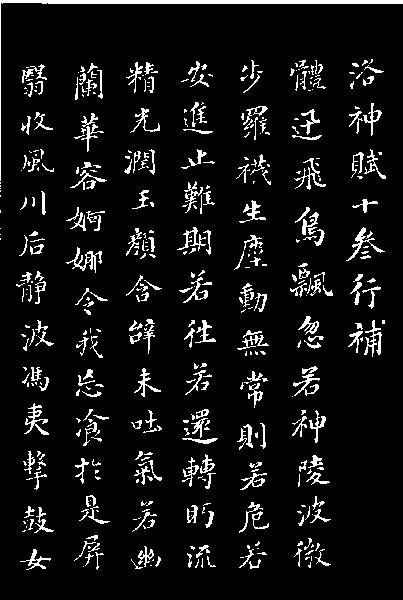 洛神賦十叄行補
體迅飛鳥飄忽若神陵波微
步羅襪生塵動無常則若危若
安進止難期若往若還轉眄流
精光潤玉顏含辭未吐氣若幽
蘭華容婀娜令我忘飡於是屏
翳收風川后靜波馮夷擊鼓女